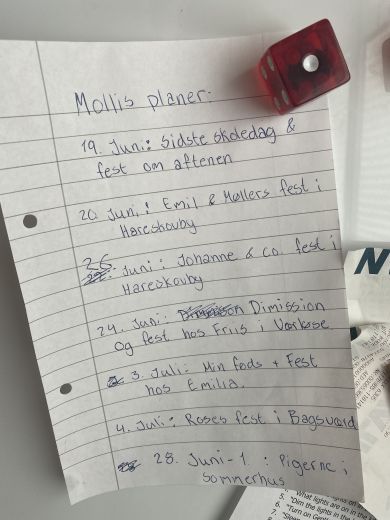 Mollis planer:
19. Juni: Sidste skoledag &
fest om aftenen
20. Juni: Emil & Møllers fest i
Hareskouby
26. Juni: Johanne & co. fest i
Hareskouby
24. Juni: Dimission
og fest hos Friis i Værløse
3. Juli: Min føds + Fest
hos Emilia.
4. Juli: Roses fest i Bagsværd
28. Juni-1. : Pigerne i
Sommerhus
N
4. "What lights are on in the
5. "Dim the lights in the
6. "Turn on
7.